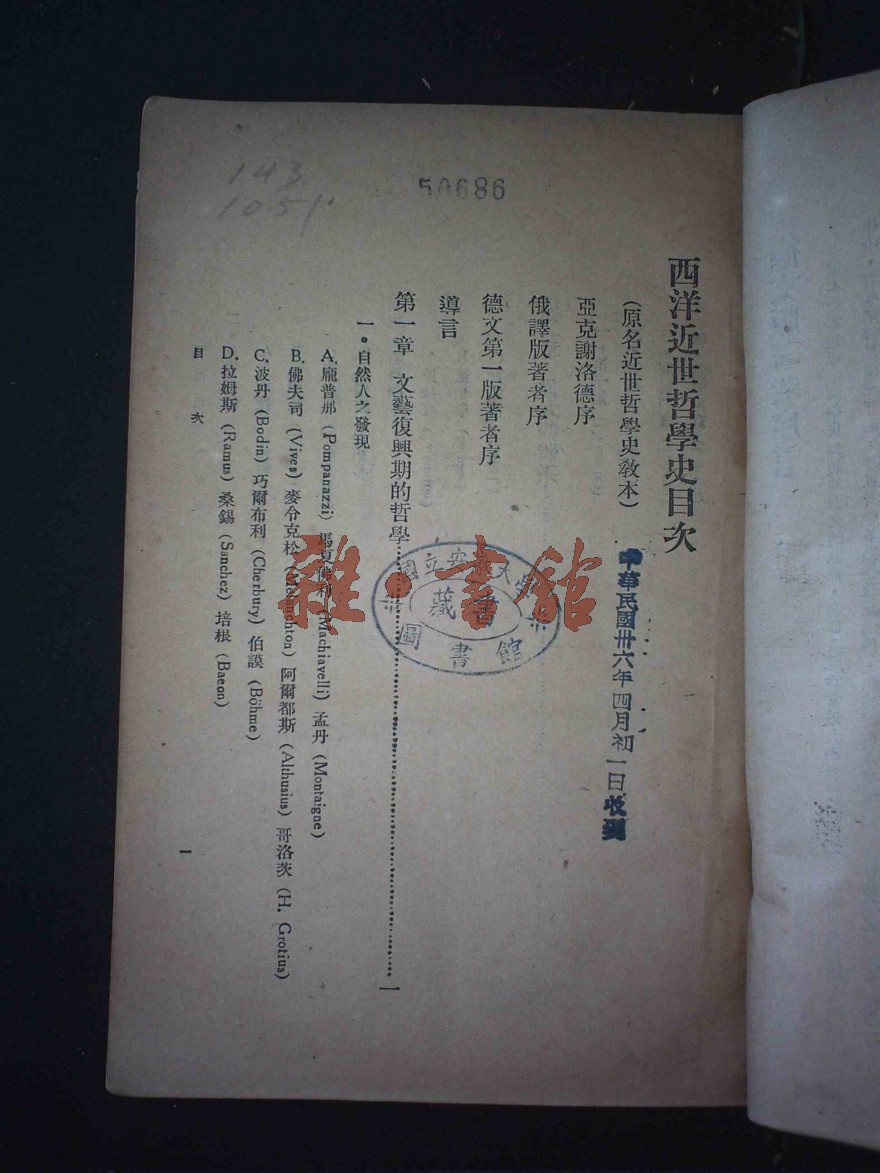 143
10.51.
50686
西洋近世哲學史目次
(原名近世哲學史敎本)
中華民國卅六年四月初一日收到
亞克謝洛德序
俄譯版著者序
德文第一版著者序
導言
第一章 文藝復興期的哲學……………………一
一。自然人之發現
A. 龐普那 (Pompanazzi) 馬夏佛利 (Machiavelli) 孟丹 (Montaigne)
B. 佛夫司 (Vives) 麥令克松 (Melanchton) 阿爾都斯 (Althusius) 哥洛茨 (H. Grotius)
C. 波丹 (Bodin) 巧爾布利 (Cherbury) 伯謨 (Böhme)
D. 拉姆斯 (Ramus) 桑錫 (Sanchez) 培根 (Baeon)
目 次
一
國立安徽大學
藏書
圖書館
雜·書館